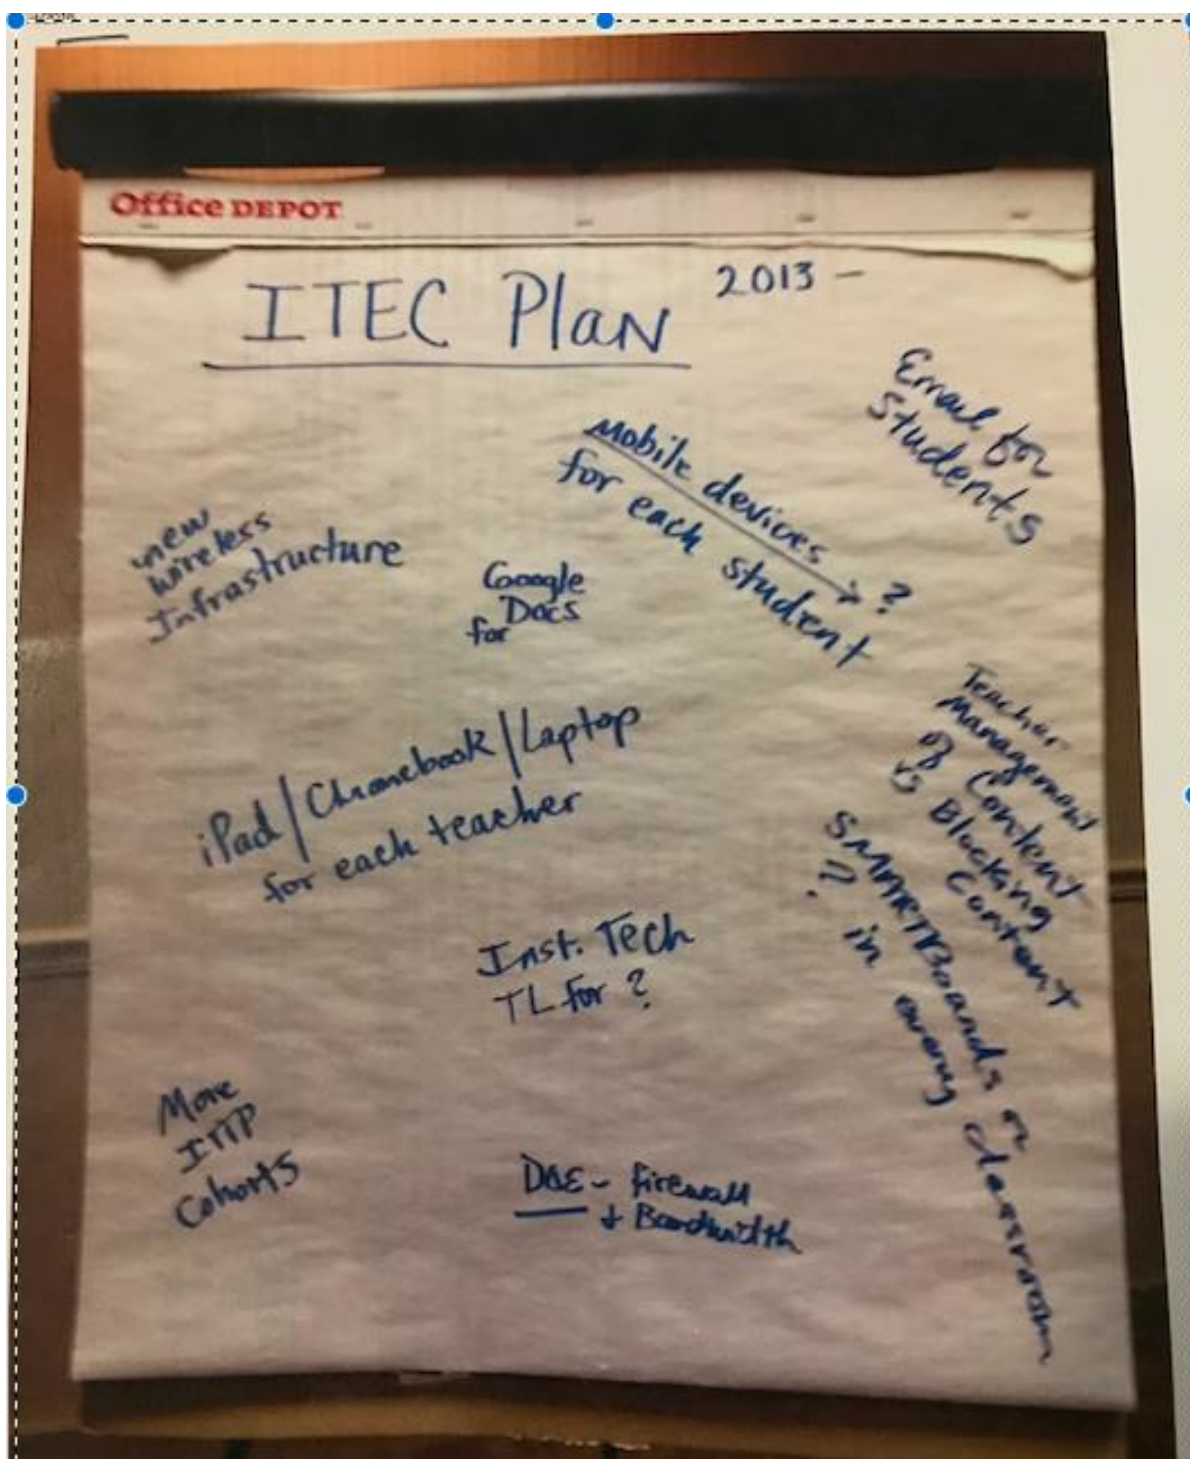 Office DEPOT
ITEC Plan
2013 -
Email for
Students
Mobile devices
for each student
?
new
wireless
Infrastructure
Google
Docs
for
Teacher
Management
of Content
vs Blocking
Content
iPad/Chromebook/Laptop
for each teacher
SMARTBoards or
?? in every classroom
Inst. Tech
TL for ?
More
Cohorts
DOE - firewall
+ Bandwidth